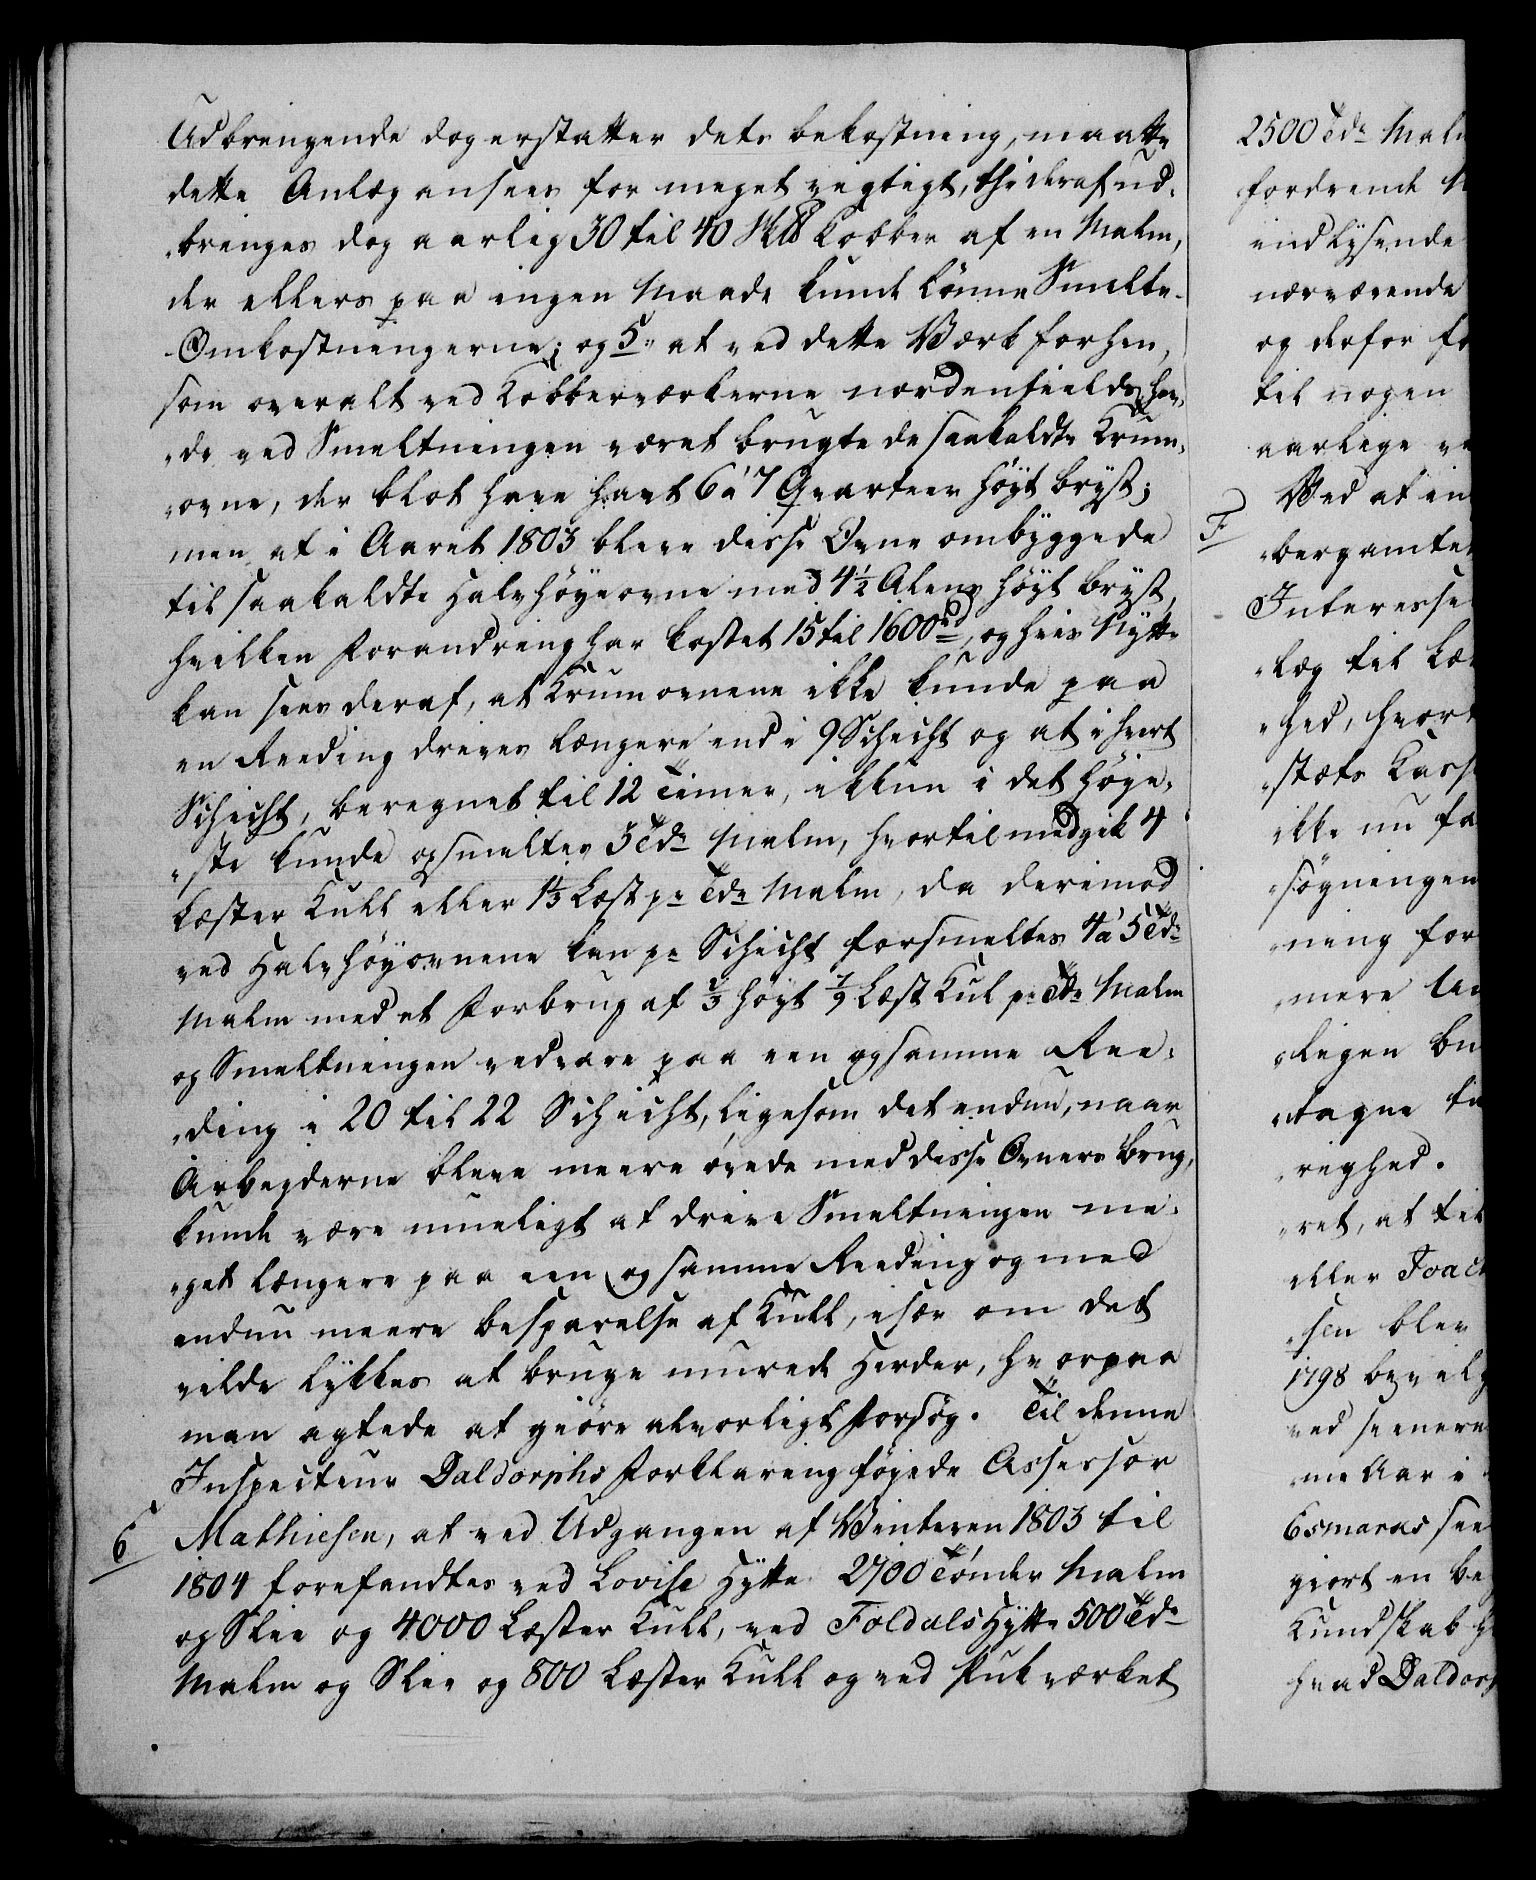 Udbringende dog erstatter dets bekostning, maatte
dette Anlæg ansees for meget vigtigt, thi deraf ud-
bringes dog aarlig 30 til 40 Sk℔ Kobber af en Malm,
der ellers paa ingen Maade kunde lønne Smelte-
Omkostningerne; og 5. at ved dette Værk forhen,
som overalt ved Kobberværkerne nordenfields, hav-
de ved Smeltningen været brugte de saakaldte Krum-
ovne, der blot have havt 6 à 7 Qvarteer høyt bryst;
men at i Aaret 1803 bleve disse Ovne ombyggede
til saakaldte Halvhøyeovne med 4½ Alens høyt bryst,
hvilken Forandring har kostet 15 til 1600 rd, og hvis Nytte
kan sees deraf, at Krumovnene ikke kunde paa
en Reeding drives længere end i 9 Schicht og at i hvert
Schicht, beregnet til 12 Timer, ikkun i det høye-
ste kunde opsmeltes 3 Tdr Malm, hvortil medgik 4
Læster Kull eller 1⅓ Læst pr Tde Malm, da derimod
ved Halvhøyovnene kan pr Schicht forsmeltes 4 à 5 Tdr
Malm med et Forbrug af ⅔ høyt 7/9 Læst Kul pr Tde Malm
og Smeltningen vedvare paa een og samme Ree-
ding i 20 til 22 Schicht, ligesom det endnu, naar
Arbeyderne bleve meere øvede med disse Ovners brug,
kunde være mueligt at drive Smeltningen me-
get længere paa een og samme Reeding og med
endnu meere besparelse af Kull, især om det
vilde lykkes at bruge murede Herder, hvorpaa
man agtede at giøre alvorligt Forsøg. Til denne
Inspecteur Daldorphs Forklaring føyede Assessor
6 Mathiesen, at ved Udgangen af Vinteren 1803 til
1804 forefandtes ved Lovise Hytte 2700 Tønder Malm
og Slie og 4000 Læster Kull, ved Foldals Hytte 500 Tdr
Malm og Slie og 800 Læster Kull og ved Pukværket
2500 Tdr Malm
fordrende
indlysende
nærværende
og derfor
til nogen
aarlige
7 Ved at
bergamte
Interesse
læg til
hed, hvor
stæts Casse
ikke nu
søgningen
ning for
mere
ligen
tagne
righed.
ret, at til
eller Joach
sen blev
1798 bevilg
ved seenere
me Aar i
Esmarcs
giort en
Kundskab
hvad Daldorph